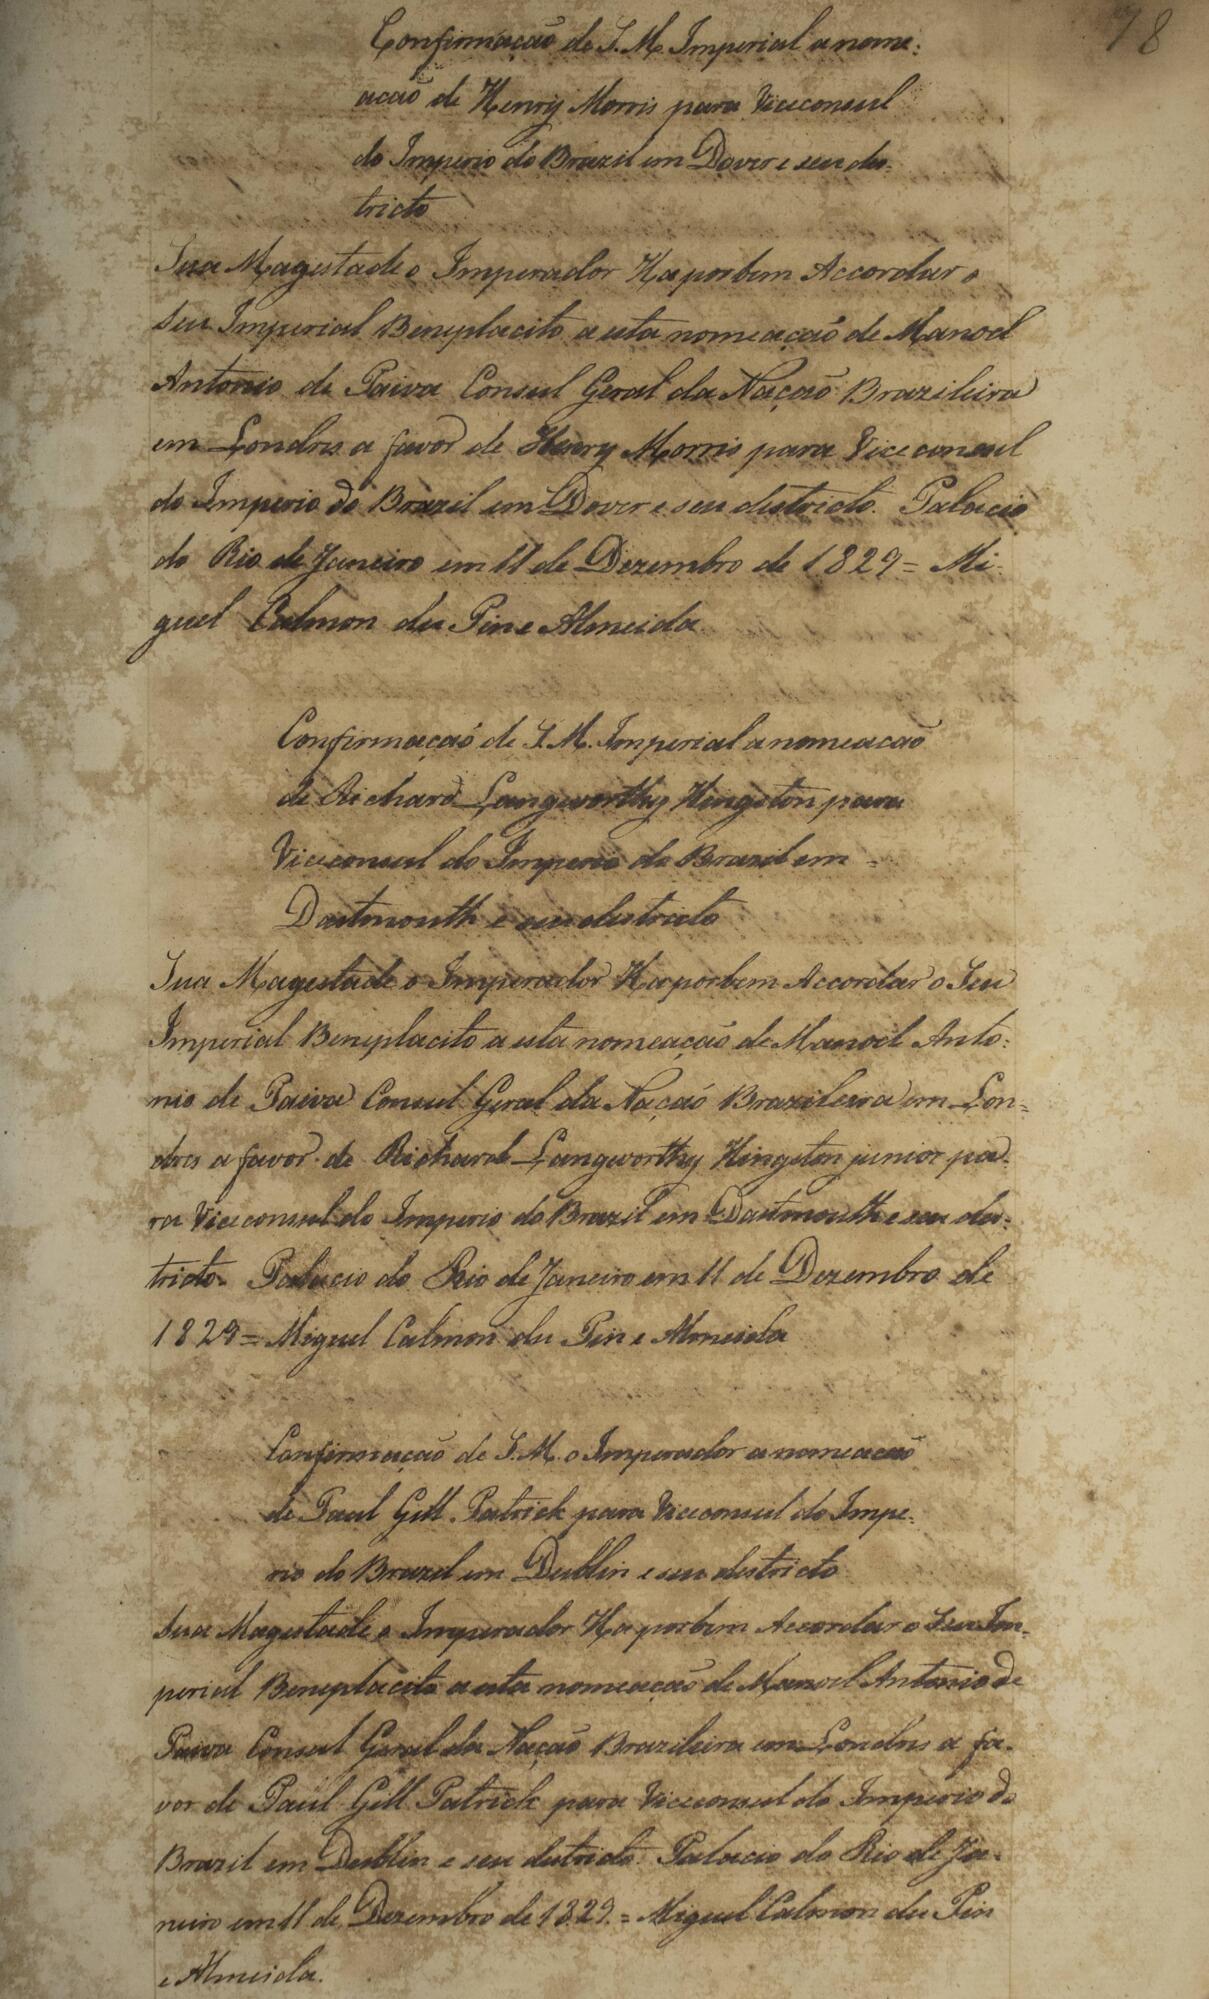 78
Confirmação de S. M. Imperial a nome:
ação de Henry Morris para Viceconsul
do Imperio do Brazil em Dover e seu des:
tricto
Sua Magestade o Imperador Ha por bem Accordar o
seu Imperial Beneplacito a esta nomeação de Manoel
Antonio de Paiva Consul Geral da Nação Brazileira
em Londres a favor de Henry Morris para Viceconsul
do Imperio do Brazil em Dover e seu destricto. Palacio
do Rio de Janeiro em 11 de Dezembro de 1829 = Mi-
guel Calmon du Pin e Almeida
Confirmação de S. M. Imperial a nomeacão
de Richard Langworthy Hingston para
Viceconsul do Imperio do Brazil em =
Dartmouth e seu destricto
Sua Magestade o Imperador Ha por bem Accordar o Seu
Imperial Beneplacito a esta nomeação de Manoel Anto:
nio de Paiva Consul Geral da Nação Brazileira em Lon=
dres a favor de Richard Langworthy Hingston junior pa-
ra Viceconsul do Imperio do Brazil em Dartmouth e seu des:
tricto. Palacio do Rio de Janeiro em 11 de Dezembro de
1829 = Miguel Calmon du Pin e Almeida
Confirmação de S. M. o Imperador a nomeacão
de Paul Gill Patrick para Viceconsul do Impe:
rio do Brazil em Dublin e seu destricto
Sua Magestade o Imperador Ha por bem Accordar o Seu Im-
perial Beneplacito a esta nomeação de Manoel Antonio de
Paiva Consul Geral da Nação Brazileira em Londres a fa-
vor de Paul Gill Patrick para Viceconsul do Imperio do
Brazil em Dublin e seu destricto. Palacio do Rio de Ja-
neiro em 11 de Dezembro de 1829. = Miguel Calmon du Pin
e Almeida.